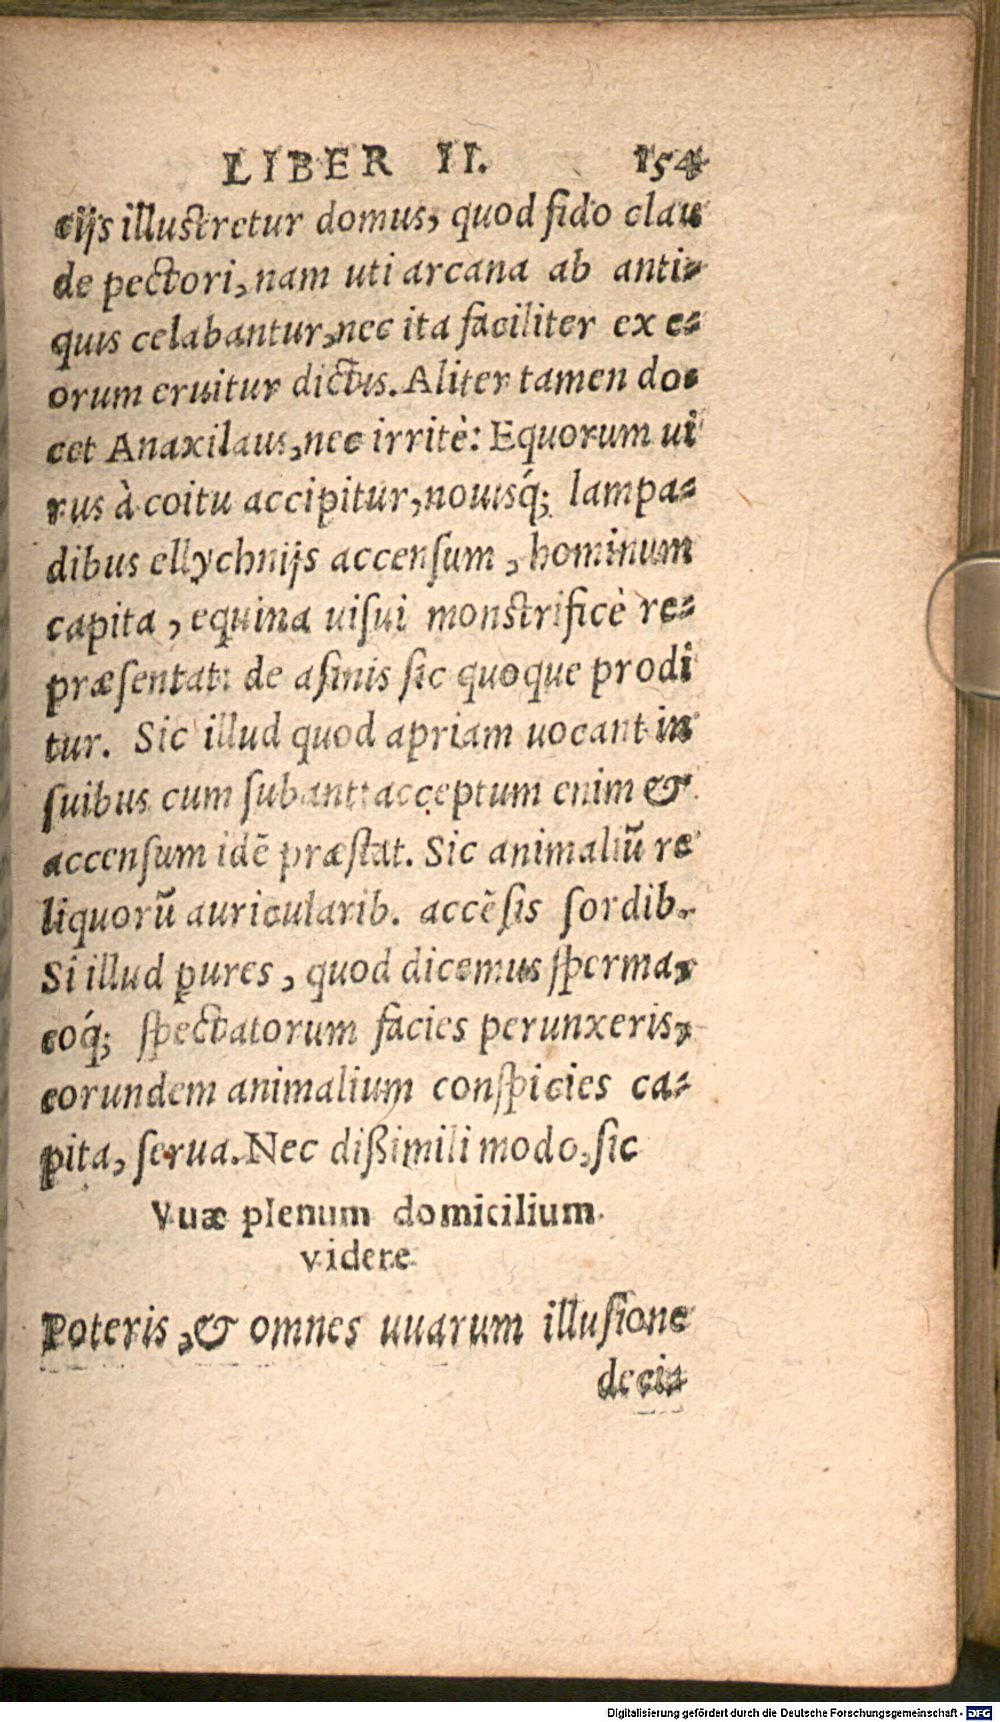 LIBER II. 154
cijs illustretur domus, quod fido clau
de pectori, nam uti arcana ab anti-
quis celabantur, nec ita faciliter ex e-
orum eruitur dictis. Aliter tamen do-
cet Anaxilaus, nec irritè: Equorum ui
rus à coitu accipitur, nouisq́; lampa-
dibus ellychnijs accensum, hominum
capita, equina uisui monstrificè re-
præsentat: de asinis sic quoque prodi
tur. Sic illud quod apriam uocant in
suibus cum subant: acceptum enim &
accensum idē præstat. Sic animaliū re
liquorū auricularib. accēsis sordib.
Si illud pures, quod dicemus sperma,
eóq; spectatorum facies perunxeris,
eorundem animalium conspicies ca-
pita, serua. Nec dißimili modo, sic
Vuæ plenum domicilium
videre
Poteris, & omnes uuarum illusione
deci-
Digitalisierung gefördert durch die Deutsche Forschungsgemeinschaft - DFG